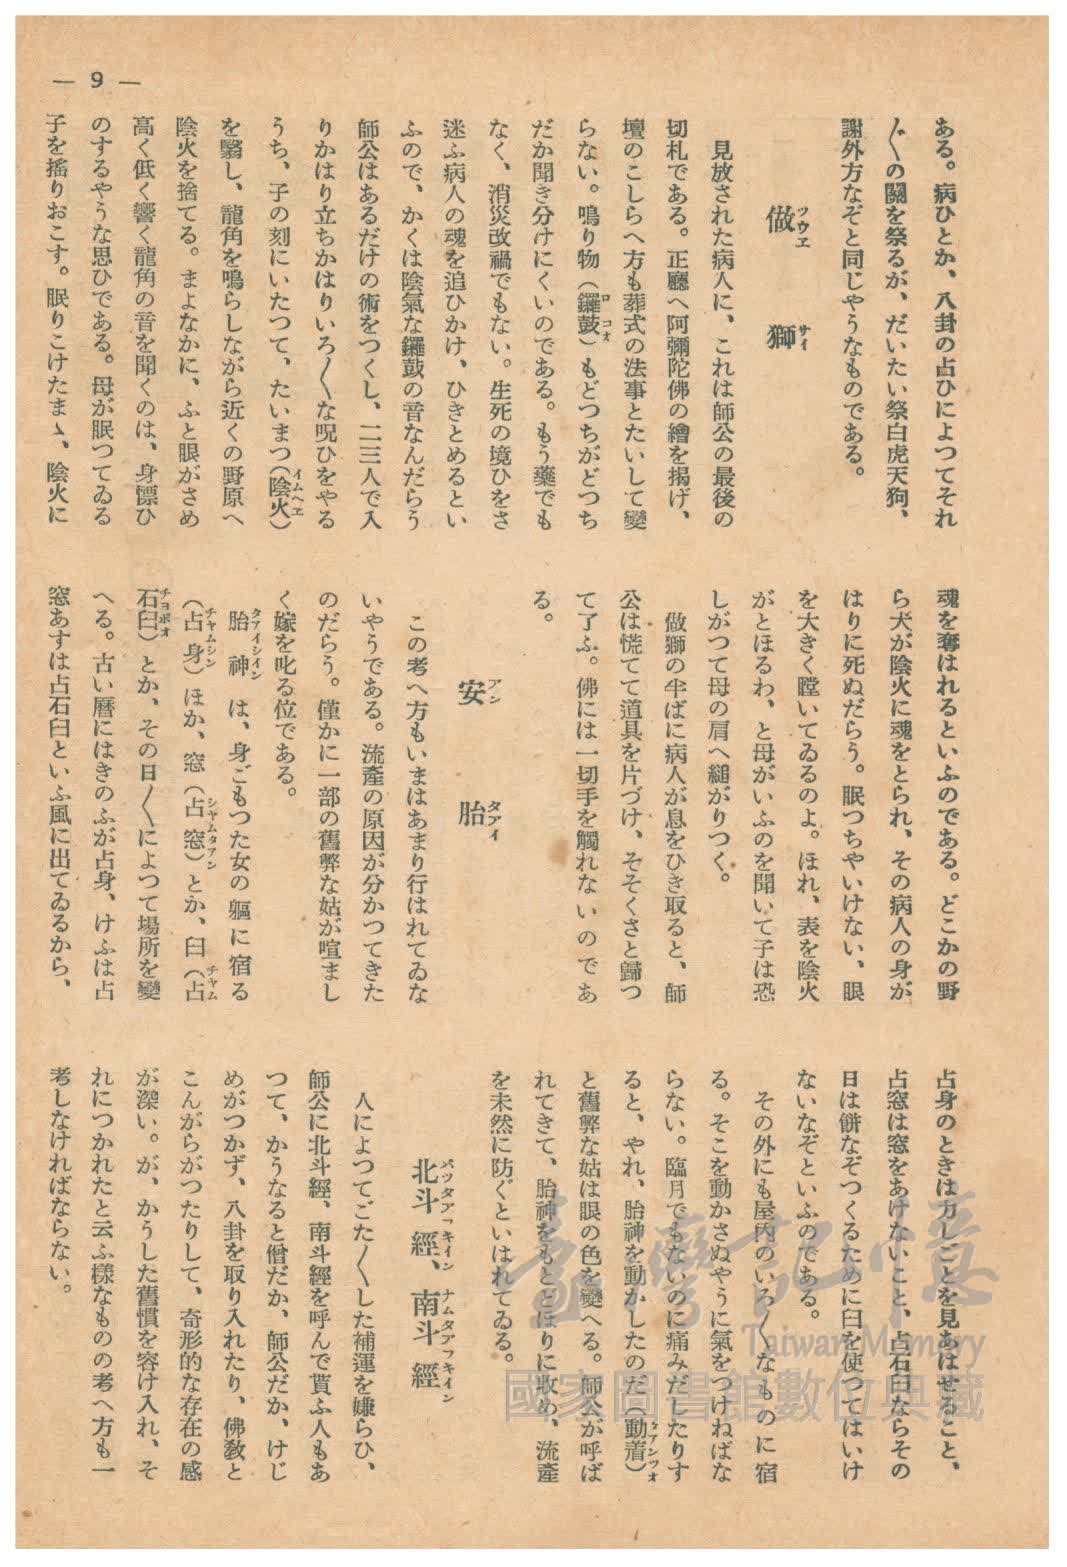 — 9 —
ある。病ひとか、八卦の占ひによつてそれ
〴〵の關を祭るが、だいたい祭白虎天狗、
謝外方なぞと同じやうなものである。
做獅
ツウヱ サイ
見放された病人に、これは師公の最後の
切札である。正廳へ阿彌陀佛の繪を揭げ、
壇のこしらへ方も葬式の法事とたいして變
らない。鳴り物（鑼鼓）もどつちがどつち
ロコオ
だか聞き分けにくいのである。もう藥でも
なく、消災改禍でもない。生死の境ひをさ
迷ふ病人の魂を追ひかけ、ひきとめるとい
ふので、かくは陰氣な鑼鼓の音なんだらう
師公はあるだけの術をつくし、二三人で入
りかはり立ちかはりいろ〱な呪ひをやる
うち、子の刻にいたつて、たいまつ（陰火）
イムヘヱ
を翳し、龍角を鳴らしながら近くの野原へ
陰火を捨てる。まよなかに、ふと眼がさめ
高く低く響く龍角の音を聞くのは、身慓ひ
のするやうな思ひである。母が眠つてゐる
子を搖りおこす。眠りこけたまゝ、陰火に
魂を奪はれるといふのである。どこかの野
ら犬が陰火に魂をとられ、その病人の身が
はりに死ぬだらう。眠つちやいけない、眼
を大きく瞠いてゐるのよ。ほれ、表を陰火
がとほるわ、と母がいふのを聞いて子は恐
しがつて母の肩へ縋がりつく。
做獅の半ばに病人が息をひき取ると、師
公は慌てて道具を片づけ、そそくさと歸つ
て了ふ。佛には一切手を觸れないのであ
る。
安胎
アン タアイ
この考へ方もいまはあまり行はれてゐな
いやうである。流產の原因が分かつてきた
のだらう。僅かに一部の舊弊な姑が喧まし
く嫁を叱る位である。
胎神は、身ごもつた女の軀に宿る
タアイシイン
（占身）ほか、窓（占窓）とか、臼（占
チヤムシン シヤムタアン チヤム
石臼）とか、その日〱によつて場所を變
チヨボオ
へる。古い曆にはきのふが占身、けふは占
窓あすは占石臼といふ風に出てゐるから、
占身のときは力しごとを見あはせること、
占窓は窓をあけないこと、占石臼ならその
日は餠なぞつくるために臼を使つてはいけ
ないなぞといふのである。
その外にも屋內のいろ〱なものに宿
る。そこを動かさぬやうに氣をつけねばな
らない。臨月でもないのに痛みだしたりす
ると、やれ、胎神を動かしたのだ（動着）
タアンツオ
と舊弊な姑は眼の色を變へる。師公が呼ば
れてきて、胎神をもとどほりに收め、流產
を未然に防ぐといはれてゐる。
北斗經、南斗經
パツタアフキイン ナムタアフキイン
人によつてごた〱した補運を嫌らひ、
師公に北斗經、南斗經を呼んで貰ふ人もあ
つて、かうなると僧だか、師公だか、けじ
めがつかず、八卦を取り入れたり、佛敎と
こんがらがつたりして、奇形的な存在の感
が深い。が、かうした舊慣を容け入れ、そ
れにつかれたと云ふ樣なものの考へ方も一
考しなければならない。
臺灣記憶
Taiwan Memory
國家圖書館數位典藏